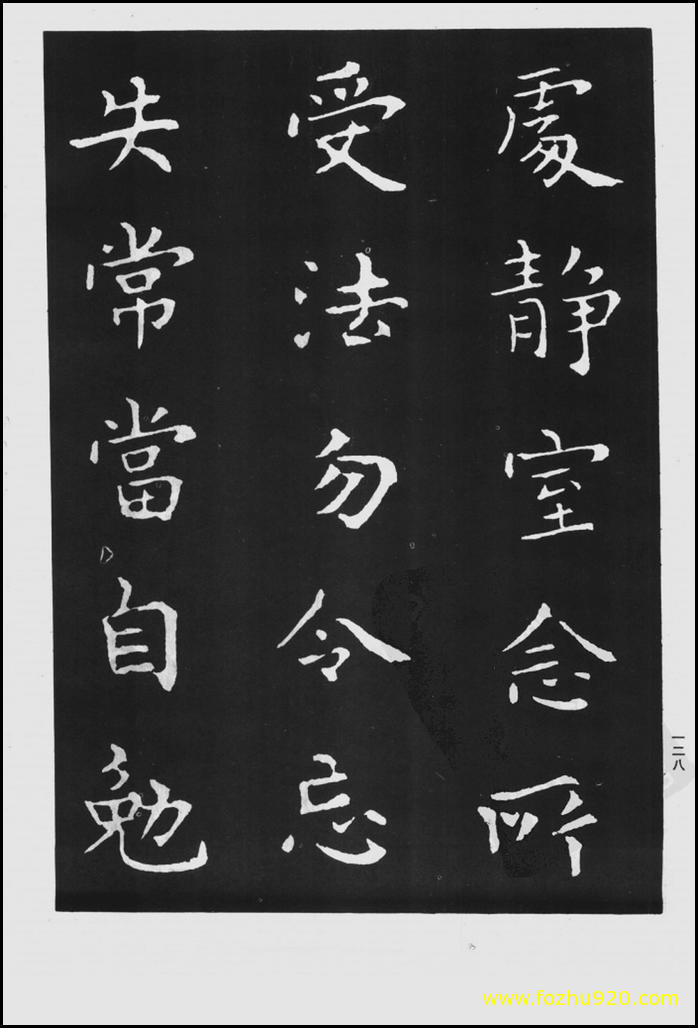 處静室念所
受法勿令忘
失常當自勉
一二八
www.fozhu920.com